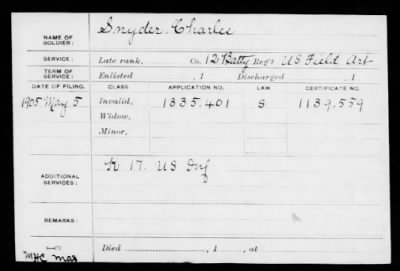 NAME OF SOLDIER: Snyder, Charles
SERVICE: Late rank, Co. 12 Batty Reg't US Field Art
TERM OF SERVICE: Enlisted , 1 Discharged , 1
DATE OF FILING. CLASS. APPLICATION NO. LAW. CERTIFICATE NO.
1905 May 5 Invalid, 1335.401 S 1139.559
Widow,
Minor,
ADDITIONAL SERVICES: K 17. US Inf
REMARKS:
Died , 1 , at
MHC